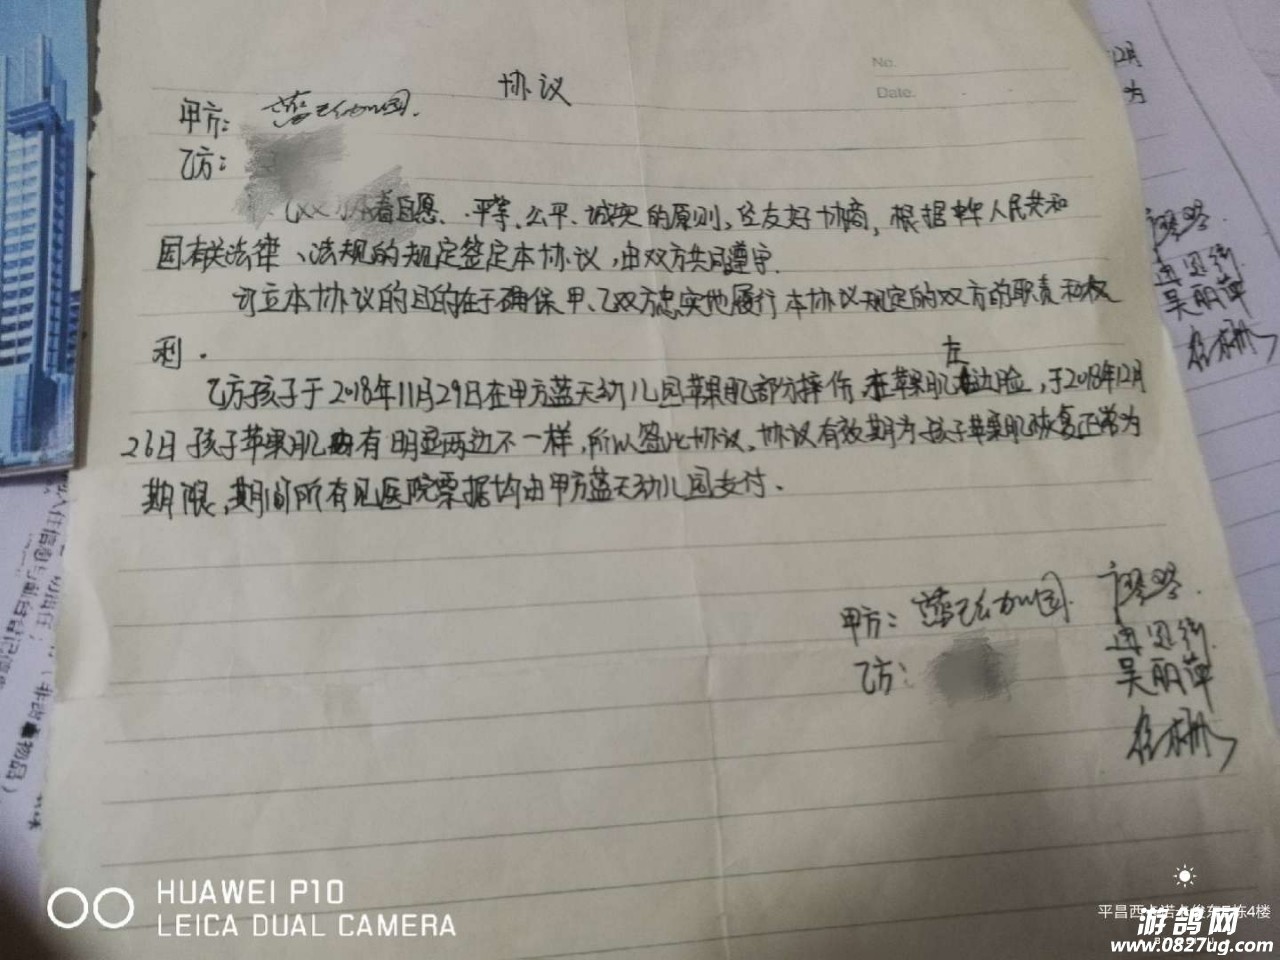 No.
Date.
协议
甲方: 蓝天幼儿园.
乙方:
乙双方本着自愿、平等、公平、诚实的原则,经友好协商,根据中华人民共和
国有关法律、法规的规定签定本协议,由双方共同遵守.
订立本协议的目的在于确保甲、乙双方忠实地履行本协议规定的双方的职责和权
利.
左
乙方孩子于2018年11月29日在甲方蓝天幼儿园苹果肌部分摔伤,在苹果肌边脸,于2018年12月
26日孩子苹果肌有明显两边不一样,所以签此协议,协议有效期为孩子苹果肌恢复正常为
期限,期间所有见医院票据均由甲方蓝天幼儿园支付.
甲方: 蓝天幼儿园.
乙方:
吴丽萍
12月
为
吴丽萍
HUAWEI P10
LEICA DUAL CAMERA
游鸽网
www.0827ug.com